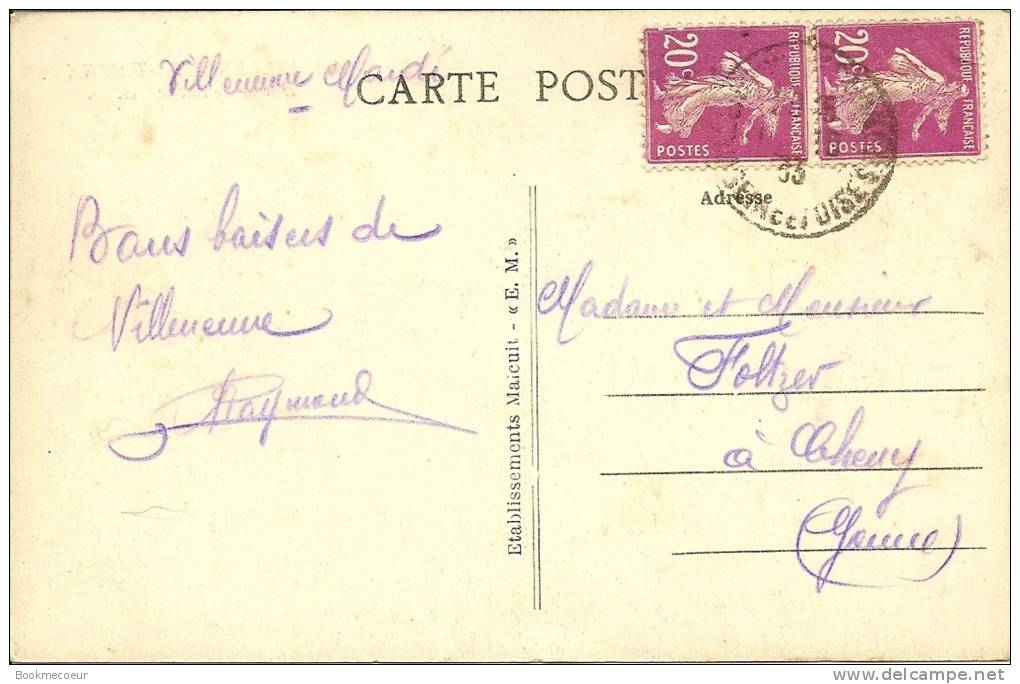 Villeneuve Mardi
CARTE POST
20c
REPUBLIQUE FRANÇAISE
POSTES
20c
REPUBLIQUE FRANÇAISE
POSTES
33
SEINE ET OISE
Adresse
Bons baisers de
Villeneuve
Raymond
Etablissements Malcuit - « E. M. »
Madame et Monsieur
Foltzer
à Cheny
(Yonne)
Bookmecoeur
delcampe.net